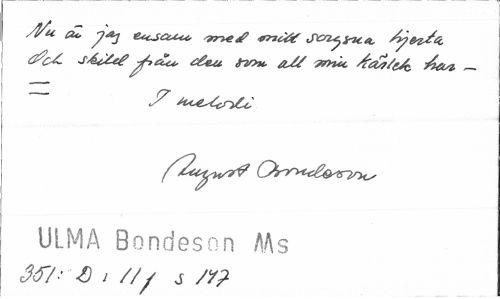 Nu är jag ensam med mitt sorgsna hjerta
Och skild från den som all min kärlek har –
I melodi
August Bondeson
ULMA Bondeson Ms
351: D : 11 f s 147